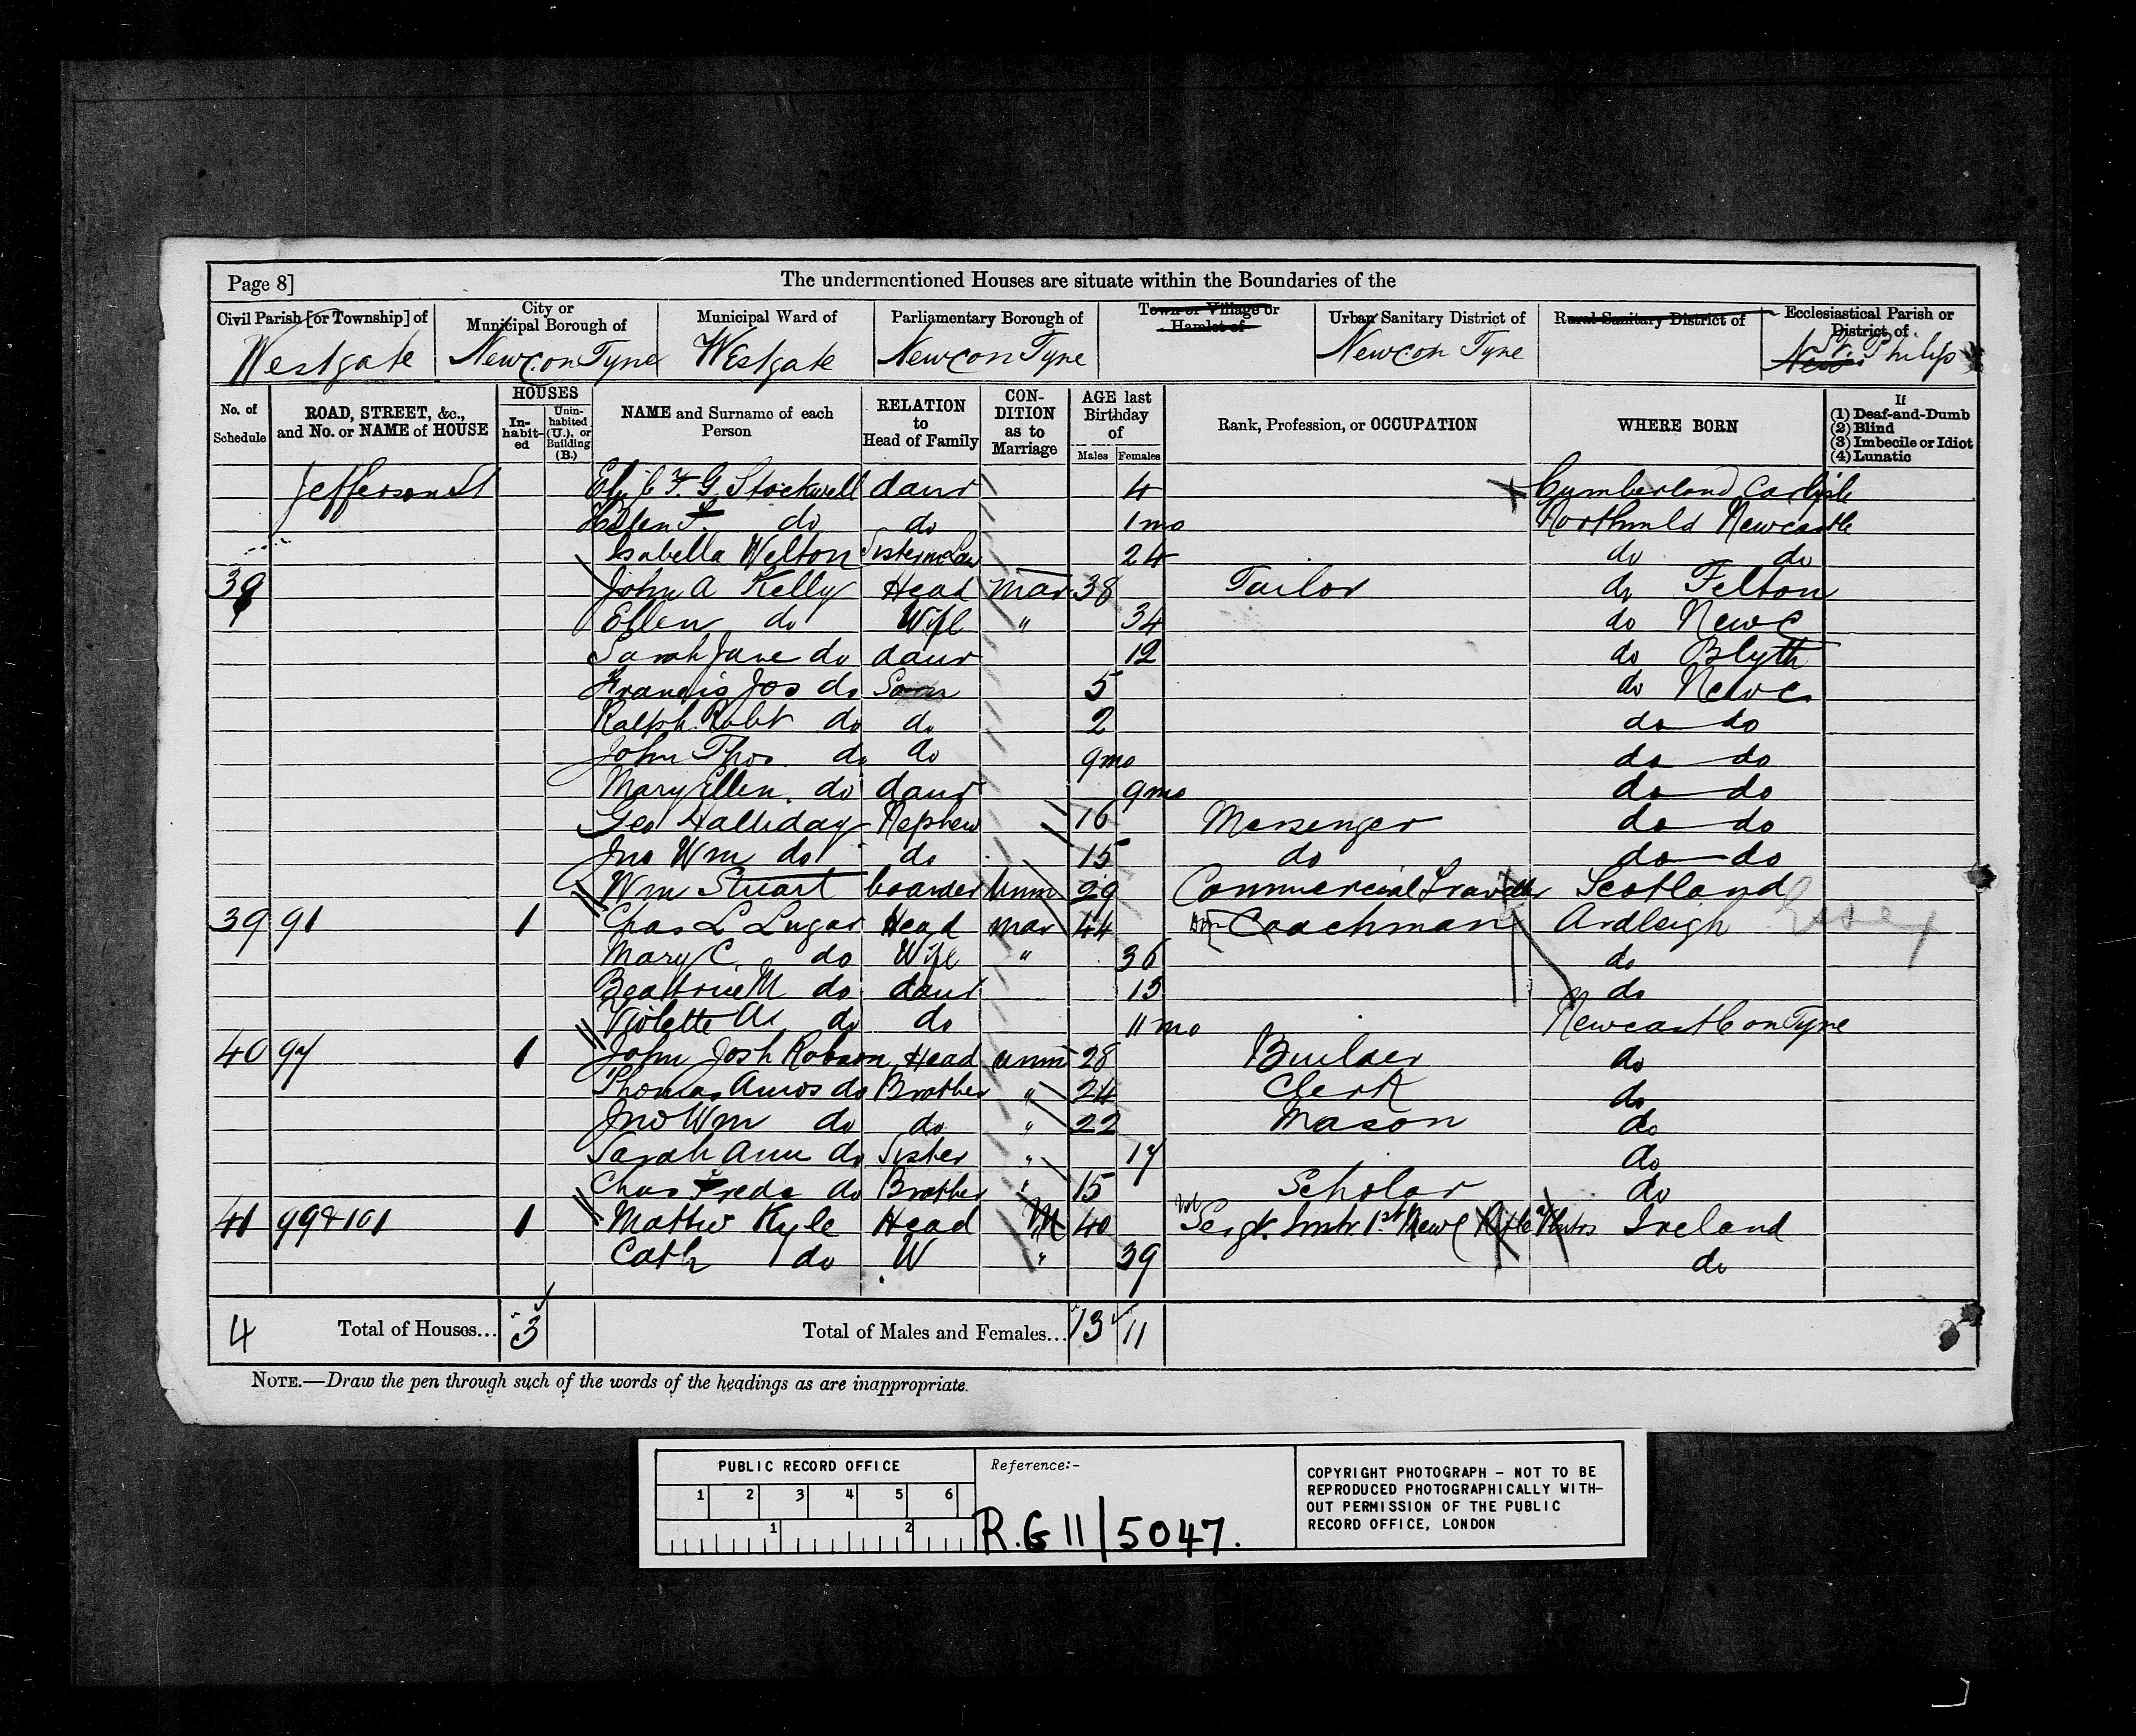 Page 8] The undermentioned Houses are situate within the Boundaries of the
Civil Parish [or Township] of City or Municipal Borough of Municipal Ward of Parliamentary Borough of Town or Village or Hamlet of Urban Sanitary District of Rural Sanitary District of Ecclesiastical Parish or District of
Westgate Newc. on Tyne Westgate Newc on Tyne Newc. on Tyne St. Philips
No. of Schedule ROAD, STREET, &c., and No. or NAME of HOUSE HOUSES In-habit-ed Unin-habited (U.), or Building (B.) NAME and Surname of each Person RELATION to Head of Family CON-DITION as to Marriage AGE last Birthday of Males Females Rank, Profession, or OCCUPATION WHERE BORN If (1) Deaf-and-Dumb (2) Blind (3) Imbecile or Idiot (4) Lunatic
Jefferson St F. G. Stockwell daur 4 Cumberland Carlisle
Helen do do 1 mo Northmld Newcastle
Isabella Welton Sister in Law 24 do do
38 John A Kelly Head mar 38 Tailor do Felton
Ellen do Wife " 34 do Newc
Sarah Jane do daur 12 do Blyth
Francis Jos do Son 5 do Newc
Ralph Robt do do 2 do do
John Thos. do do 9mo do do
Mary Ellen. do daur 9mo do do
Geo Halliday Nephew 16 Messenger do do
Jno Wm do do 15 do do do
Wm Stuart boarder unm 29 Commercial Traveller Scotland
39 91 1 Chas L Lugar Head mar 44 Coachman Ardleigh Essex
Mary C. do Wife " 36 do
Beatrice M do daur 15 do
Violette A do do 11 mo Newcastle on Tyne
40 97 1 John Josh Robson Head unm 28 Builder do
Thomas Amos do Brother " 24 Clerk do
Jno Wm do do " 22 Mason do
Sarah Ann do Sister " 17 do
Chas Fredc do Brother " 15 Scholar do
41 99 & 101 1 Mathw Kyle Head M 40 Sergt. Instr. 1st Newc Rifle Ireland
Cath do W " 39 do
4 Total of Houses... 3 Total of Males and Females... 13 11
NOTE.—Draw the pen through such of the words of the headings as are inappropriate.
PUBLIC RECORD OFFICE
1 2 3 4 5 6
1 2
Reference:-
R.G 11/5047.
COPYRIGHT PHOTOGRAPH - NOT TO BE
REPRODUCED PHOTOGRAPHICALLY WITH-
OUT PERMISSION OF THE PUBLIC
RECORD OFFICE, LONDON